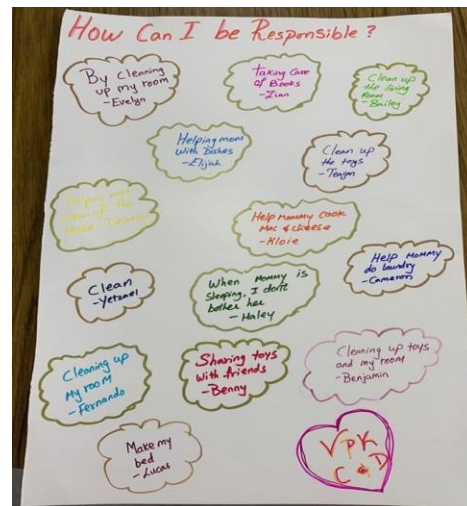 How Can I be Responsible?
By Cleaning
up my room
-Evelyn
Taking Care
of Books
-Zian
Clean up
the living
Room
-Bailey
Helping mom
With Dishes
-Elijah
Clean up
the toys
-Teagan
the
Help Mommy Cook
Mac & cheese
-Kloie
Clean
-Yetzael
When Mommy is
sleeping, I don't
bother her
-Haley
Help Mommy
do laundry
-Cameron
Cleaning up
My room
-Fernando
Sharing toys
with friends
-Benny
Cleaning up toys
and my room
-Benjamin
Make my
bed
-Lucas
VPK
C D